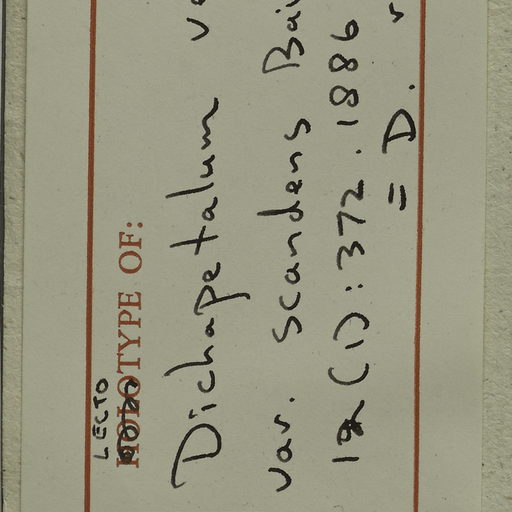 LECTO
HOLOTYPE OF:
Dichapetalum
var. scandens
(1): 372. 1886
= D.